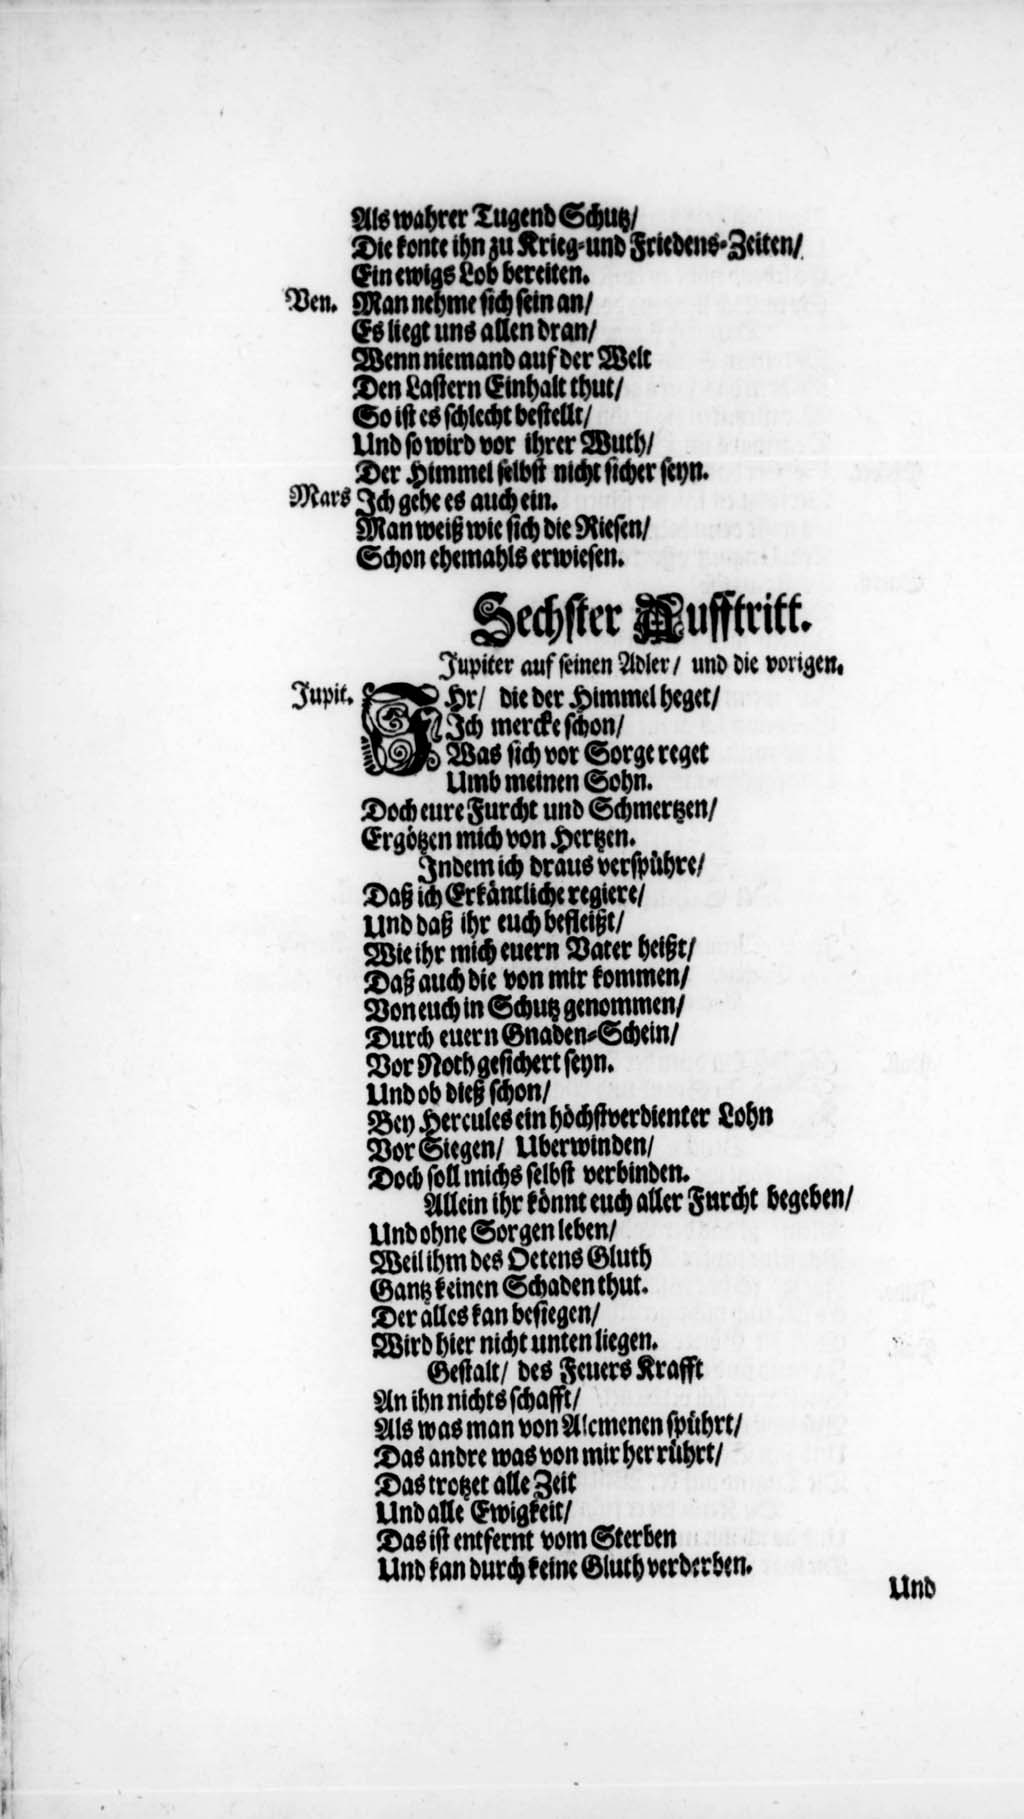 Als wahrer Tugend Schutz/
Die konte ihn zu Krieg-und Friedens-Zeiten/
Ein ewigs Lob bereiten.
Ven. Man nehme sich sein an/
Es liegt uns allen dran/
Wenn niemand auf der Welt
Den Lastern Einhalt thut/
So ist es schlecht bestellt/
Und so wird vor ihrer Wuth/
Der Himmel selbst nicht sicher seyn.
Mars Ich gehe es auch ein.
Man weiß wie sich die Riesen/
Schon ehemahls erwiesen.
Sechster Aufftritt.
Jupiter auf seinen Adler/ und die vorigen.
Jupit. IHr/ die der Himmel heget/
Ich mercke schon/
Was sich vor Sorge reget
Umb meinen Sohn.
Doch eure Furcht und Schmertzen/
Ergötzen mich von Hertzen.
Indem ich draus verspühre/
Daß ich Erkäntliche regiere/
Und daß ihr euch befleißt/
Wie ihr mich euern Vater heißt/
Daß auch die von mir kommen/
Von euch in Schutz genommen/
Durch euern Gnaden-Schein/
Vor Noth gesichert seyn.
Und ob dieß schon/
Bey Hercules ein höchstverdienter Lohn
Vor Siegen/ Uberwinden/
Doch soll michs selbst verbinden.
Allein ihr könnt euch aller Furcht begeben/
Und ohne Sorgen leben/
Weil ihm des Oetens Gluth
Gantz keinen Schaden thut.
Der alles kan besiegen/
Wird hier nicht unten liegen.
Gestalt/ des Feuers Krafft
An ihn nichts schafft/
Als was man von Alcmenen spührt/
Das andre was von mir her rührt/
Das trotzet alle Zeit
Und alle Ewigkeit/
Das ist entfernt vom Sterben
Und kan durch keine Gluth verderben.
Und